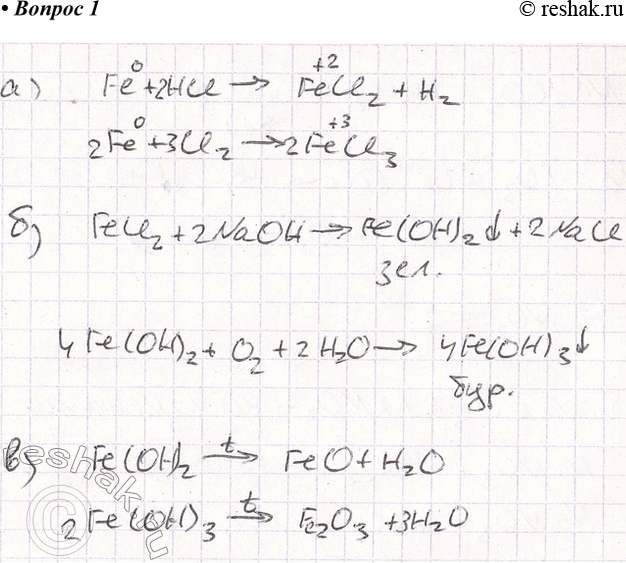 • Вопрос 1
© reshak.ru
а) Fe⁰ + 2HCl → Fe⁺²Cl₂ + H₂
2Fe⁰ + 3Cl₂ → 2Fe⁺³Cl₃
б) FeCl₂ + 2NaOH → Fe(OH)₂↓ + 2NaCl
зел.
4Fe(OH)₂ + O₂ + 2H₂O → 4Fe(OH)₃↓
бур.
в) Fe(OH)₂ →ᵗ FeO + H₂O
2Fe(OH)₃ →ᵗ Fe₂O₃ + 3H₂O
© reshak.ru